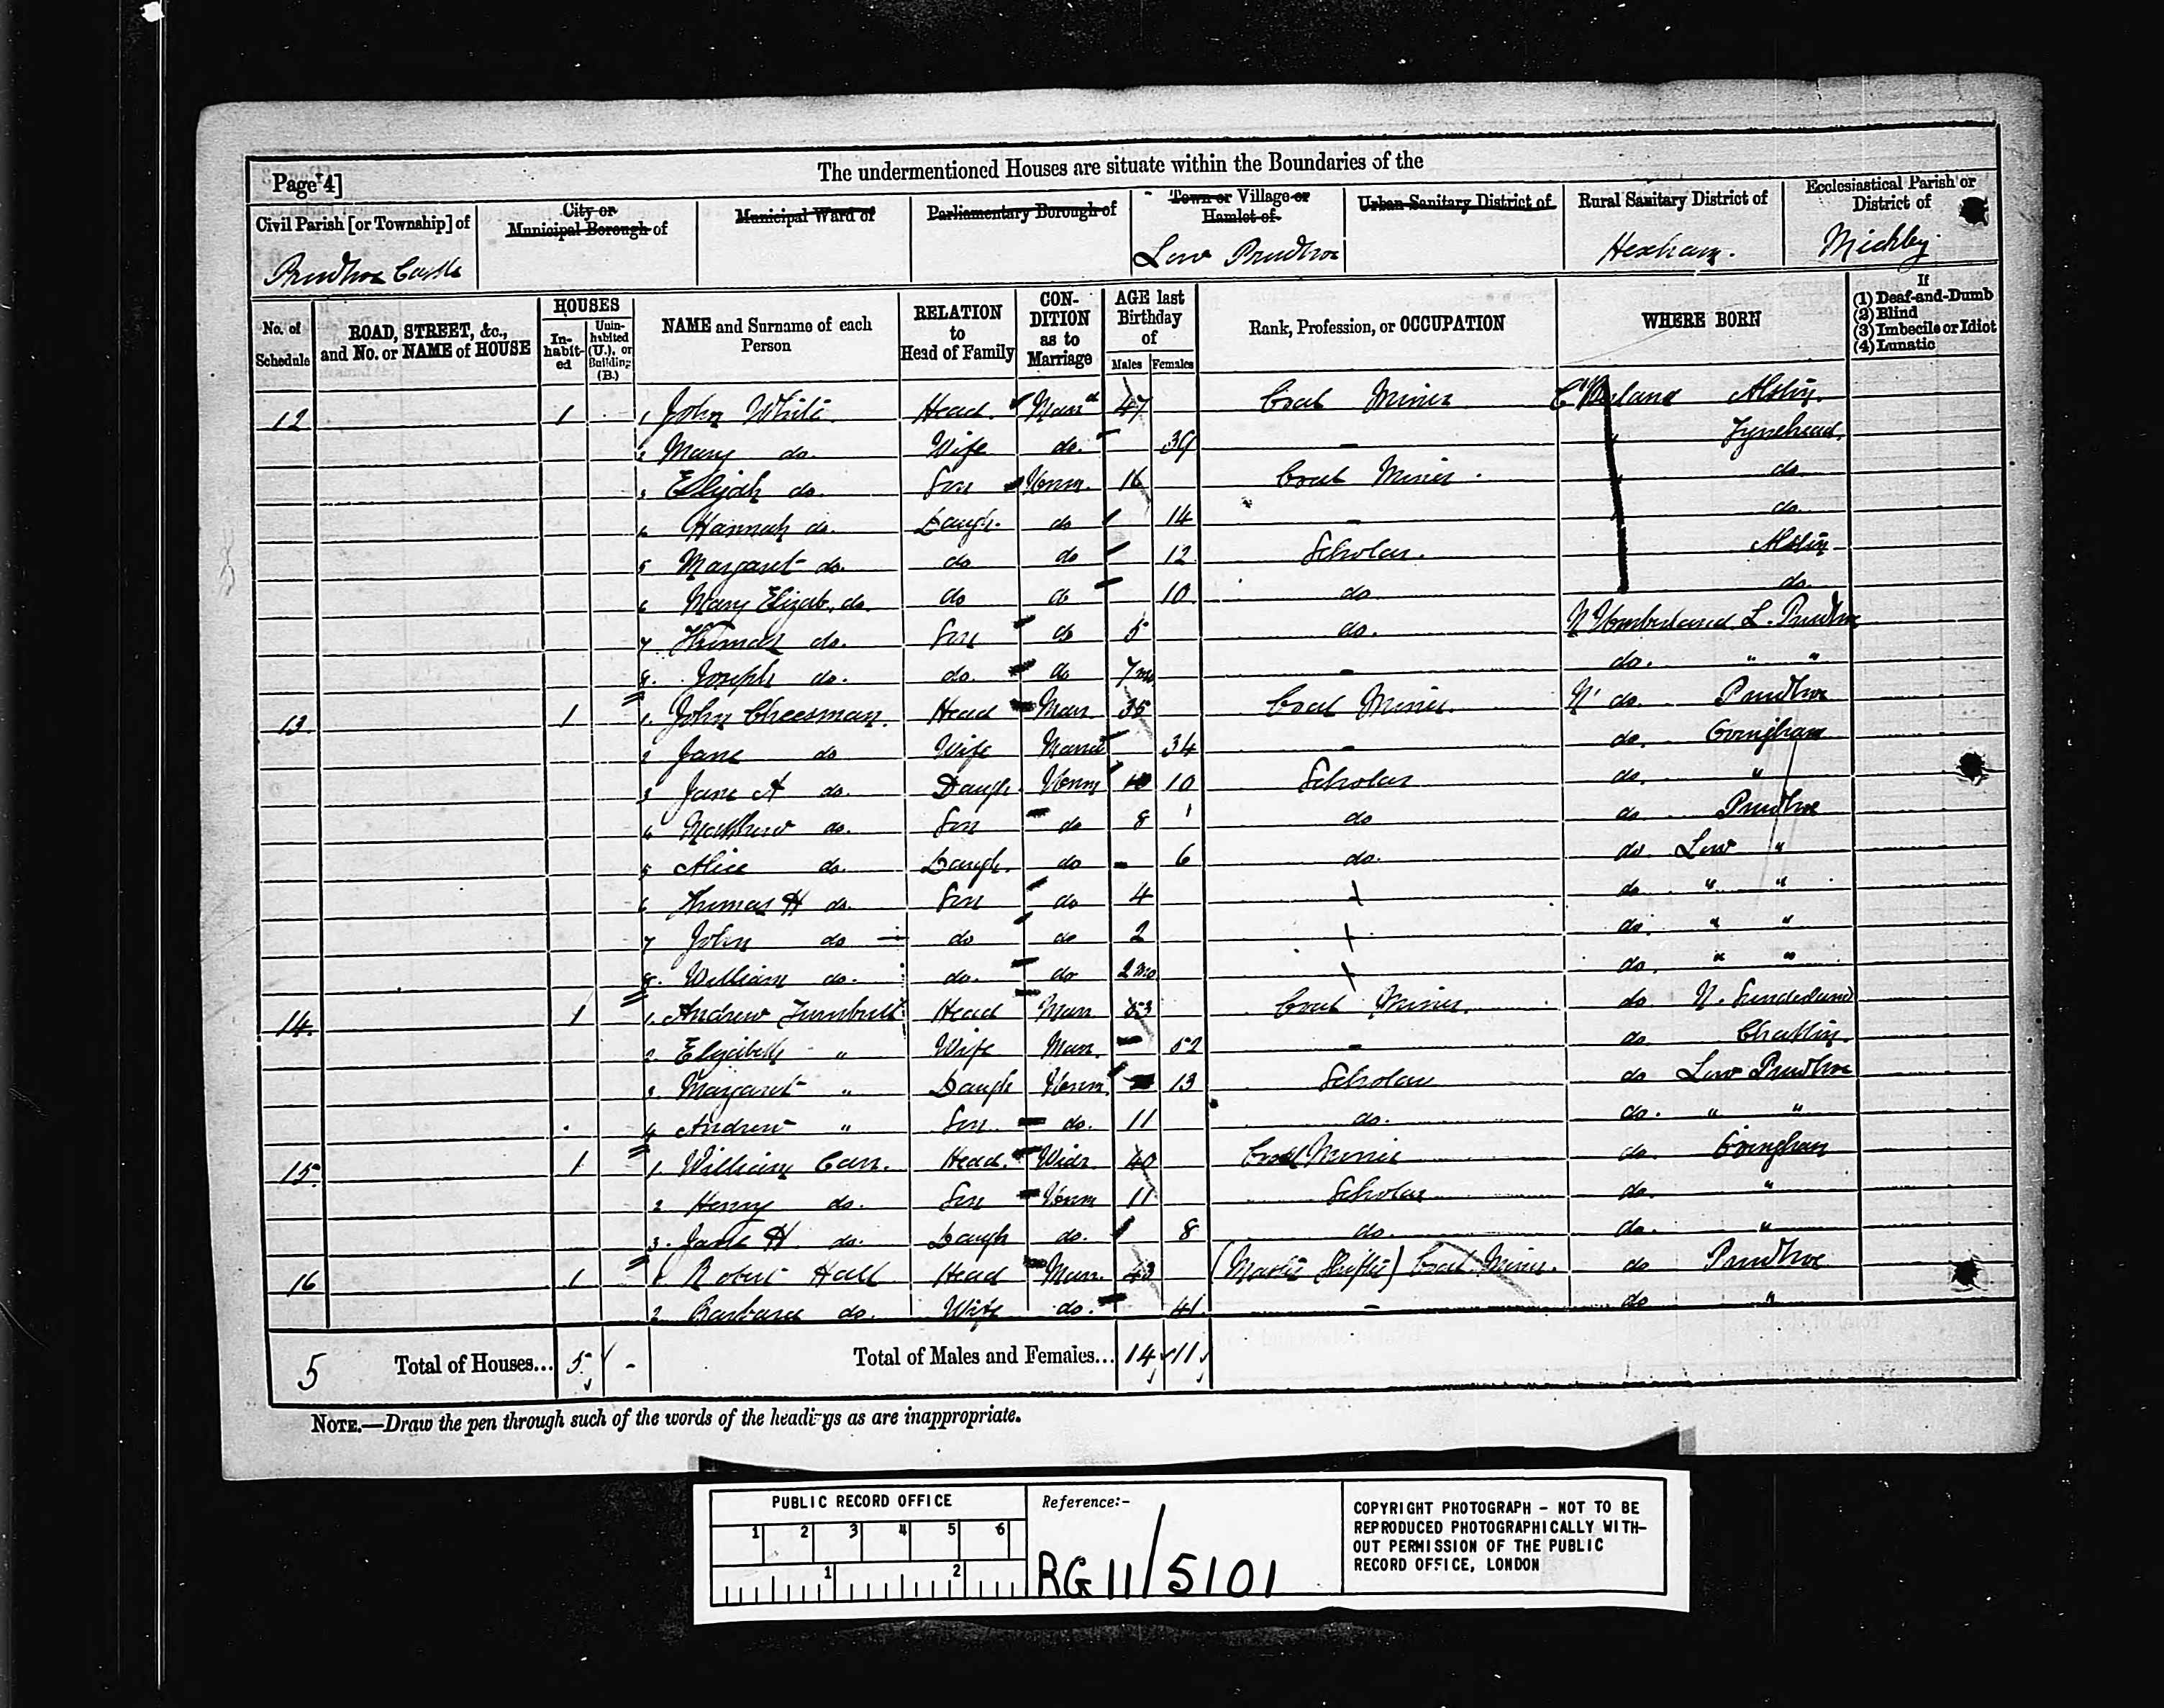 The undermentioned Houses are situate within the Boundaries of the
Page 4]
Civil Parish [or Township] of
City or Municipal Borough of
Municipal Ward of
Parliamentary Borough of
Town or Village or Hamlet of
Urban Sanitary District of
Rural Sanitary District of
Ecclesiastical Parish or District of
Prudhoe Castle
Low Prudhoe
Hexham.
Mickley
No. of Schedule
ROAD, STREET, &c., and No. or NAME of HOUSE
HOUSES
In-habit-ed
Unin-habited (U.), or Building (B.)
NAME and Surname of each Person
RELATION to Head of Family
CON-DITION as to Marriage
AGE last Birthday of
Males
Females
Rank, Profession, or OCCUPATION
WHERE BORN
If (1) Deaf-and-Dumb (2) Blind (3) Imbecile or Idiot (4) Lunatic
12 1 1 John White. Head. Marrd 47 Coal Miner Alston.
2 Mary do. Wife do. 39 - " Tynehead.
3 Elijah do. Son Unm. 16 Coal Miner. " do
4 Hannah do. Daugh. do 14 - " do.
5 Margaret do. do do 12 Scholar. Alston
6 Mary Elizab. do. do do 10 do. do.
7 Thomas do. Son do 5 do. N Umberland L. Prudhoe
8. Joseph do. do. do 7 mo - do. " "
13. 1 1. John Cheesman. Head Marr 35 Coal Miner. N' do. Prudhoe
2 Jane do Wife Marrd 34 - do. Ovingham
3 Jane A do. Daugh Unm 10 Scholar do. "
4 Matthew do. Son do 8 do do Prudhoe
5 Alice do. Daugh. do 6 do. do Low "
6 Thomas H do. Son do 4 do " "
7 John do do do 2 do. " "
8. William do. do. do 2 mo do. " "
14. 1 1. Andrew Turnbull Head Marr 53 Coal Miner. do. N. Sunderland
2. Elizabeth " Wife Marr. 52 - do. Chatton.
3. Margaret " Daugh Unm. 13 Scholar do Low Prudhoe
4 Andrew " Son do. 11 do. do. " "
15. 1 1 William Carr. Head. Widr 40 Coal Miner do. Ovingham
2 Henry do. Son Unm 11 Scholar do. "
3. Jane H do. Daugh do. 8 do. do. "
16 1 1 Robert Hall Head Marr. 43 (Master Shifter) Coal Miner. do Prudhoe
2 Barbara do. Wife do. 41. - do "
5 Total of Houses... 5 - Total of Males and Females... 14 11
NOTE.—Draw the pen through such of the words of the headings as are inappropriate.
PUBLIC RECORD OFFICE
1 2 3 4 5 6
1 2
Reference:-
RG 11/5101
COPYRIGHT PHOTOGRAPH - NOT TO BE
REPRODUCED PHOTOGRAPHICALLY WITH-
OUT PERMISSION OF THE PUBLIC
RECORD OFFICE, LONDON